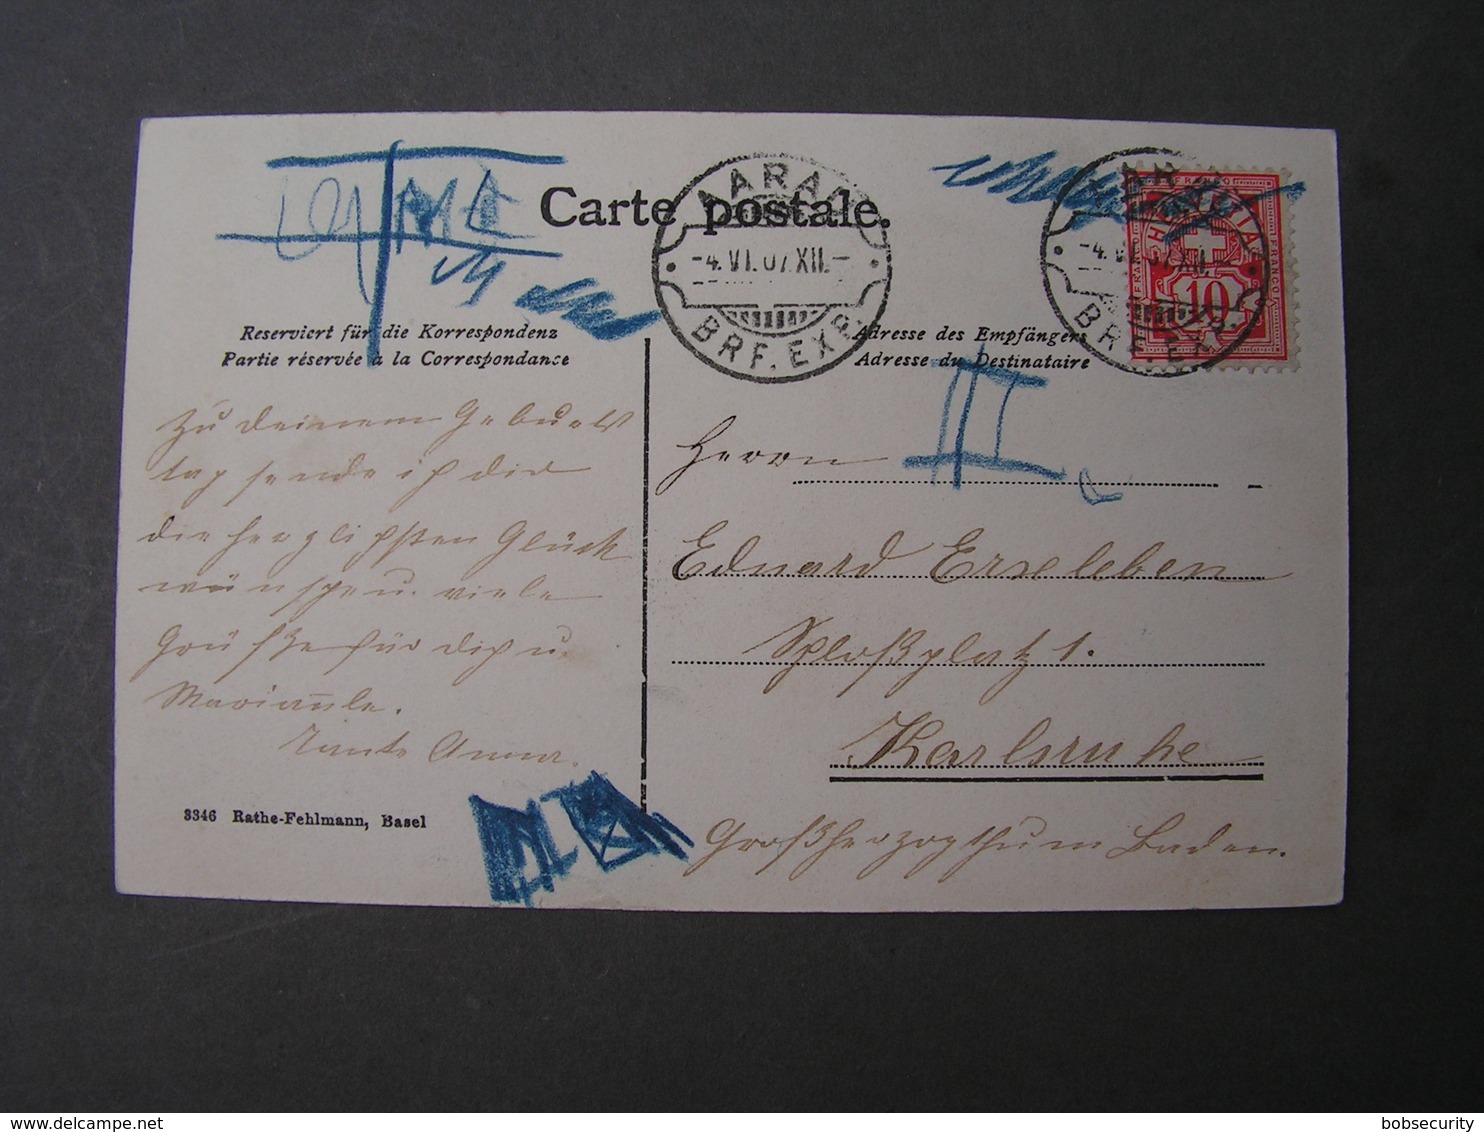 Carte postale.
AARAU
-4.VI.07.XII.-
BRF. EXP.
AARAU
-4.VI.07.XII.-
BRF. EXP.
FRANCO
HELVETIA
10
Reserviert für die Korrespondenz
Partie réservée à la Correspondance
Adresse des Empfängers
Adresse du Destinataire
Zu deinem Geburts
tag sende ich dir
die herzlichsten Glück
wünsche u. viele
Grüße für dich u.
Mariannle.
Tante Anna.
Herrn
Eduard Erxleben
Schloßplatz 1.
Karlsruhe
Großherzogthum Baden.
3346 Rathe-Fehlmann, Basel
bobsecurity